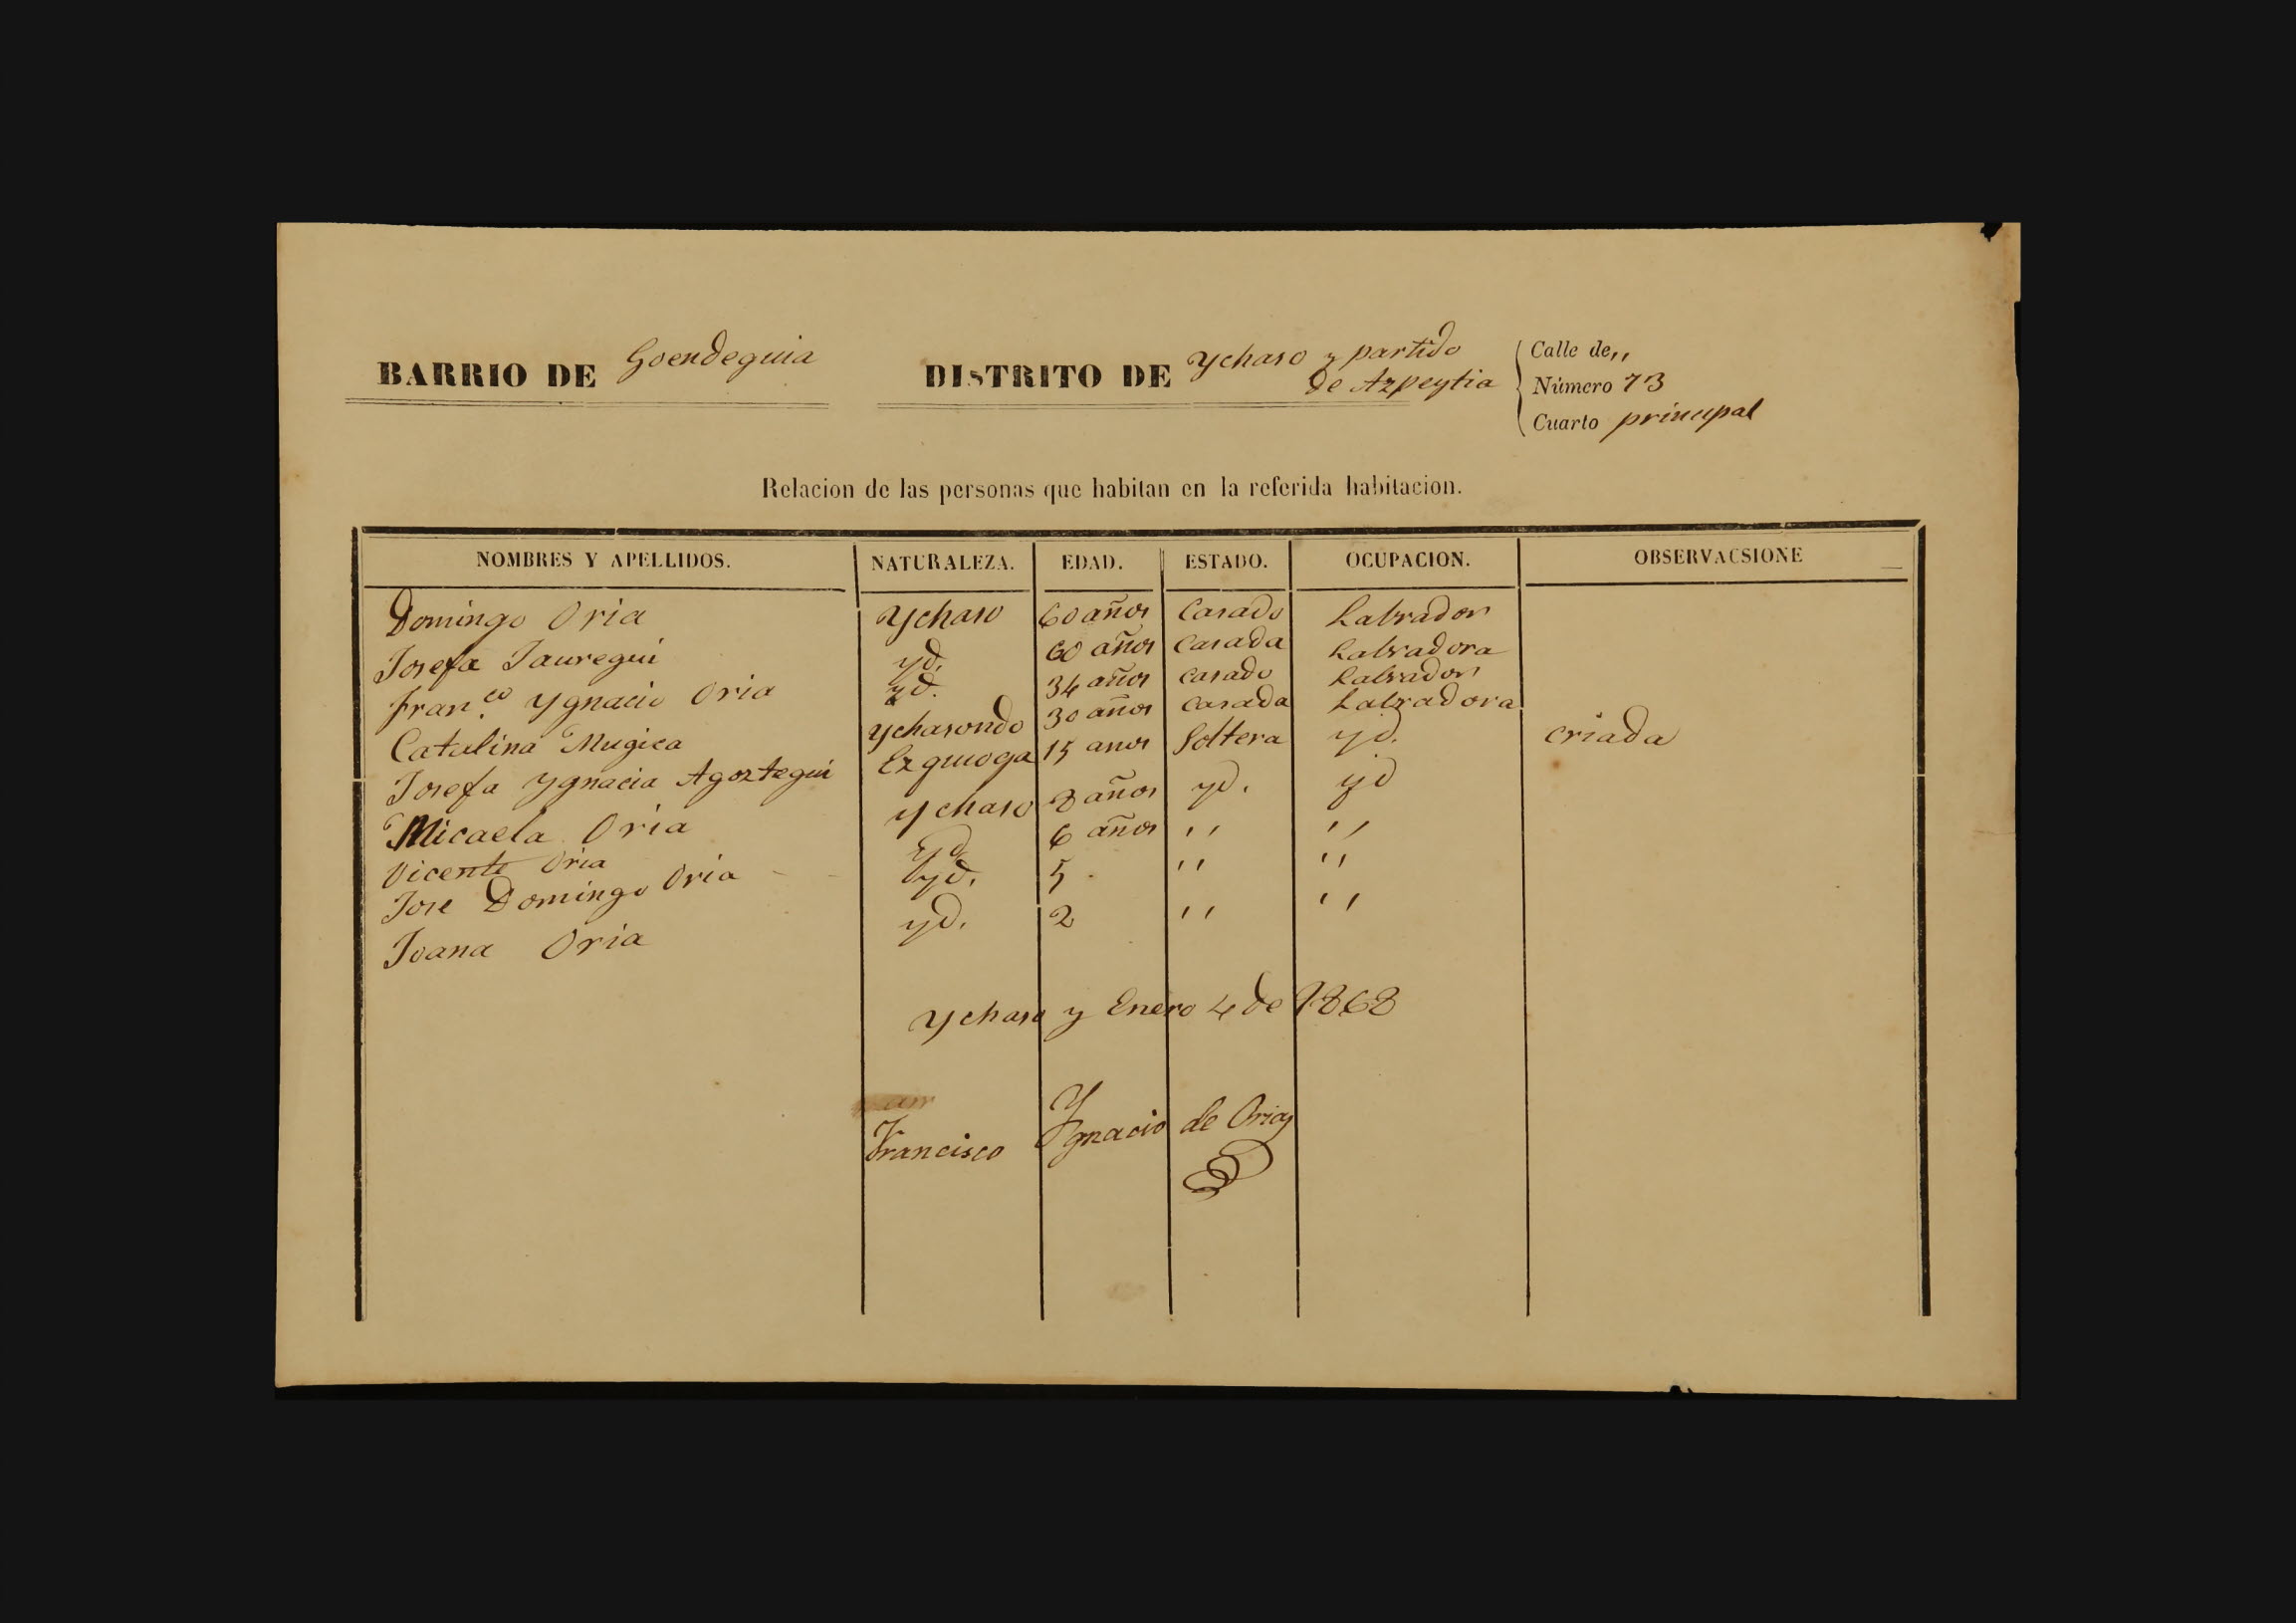 BARRIO DE Goendeguia DISTRITO DE Ychaso y partido de Azpeytia
Calle de,,
Número 73
Cuarto principal
Relacion de las personas que habitan en la referida habitacion.
NOMBRES Y APELLIDOS. NATURALEZA. EDAD. ESTADO. OCUPACION. OBSERVACSIONE
Domingo Oria Ychaso 60 años Casado Labrador
Josefa Jauregui yd. 60 años Casada Labradora
Fran.co Ygnacio Oria yd. 34 años casado Labrador
Catalina Mugica Ychasondo 30 años casada Labradora
Josefa Ygnacia Agoztegui Ezquioga 15 anos Soltera yd. criada
Micaela Oria Ychaso 8 años yd. yd
Vicente Oria yd 6 años ,, ,,
Jose Domingo Oria yd. 5 ,, ,,
Joana Oria yd. 2 ,, ,,
Ychaso y Enero 4 de 1868
Francisco Ygnacio de Oria